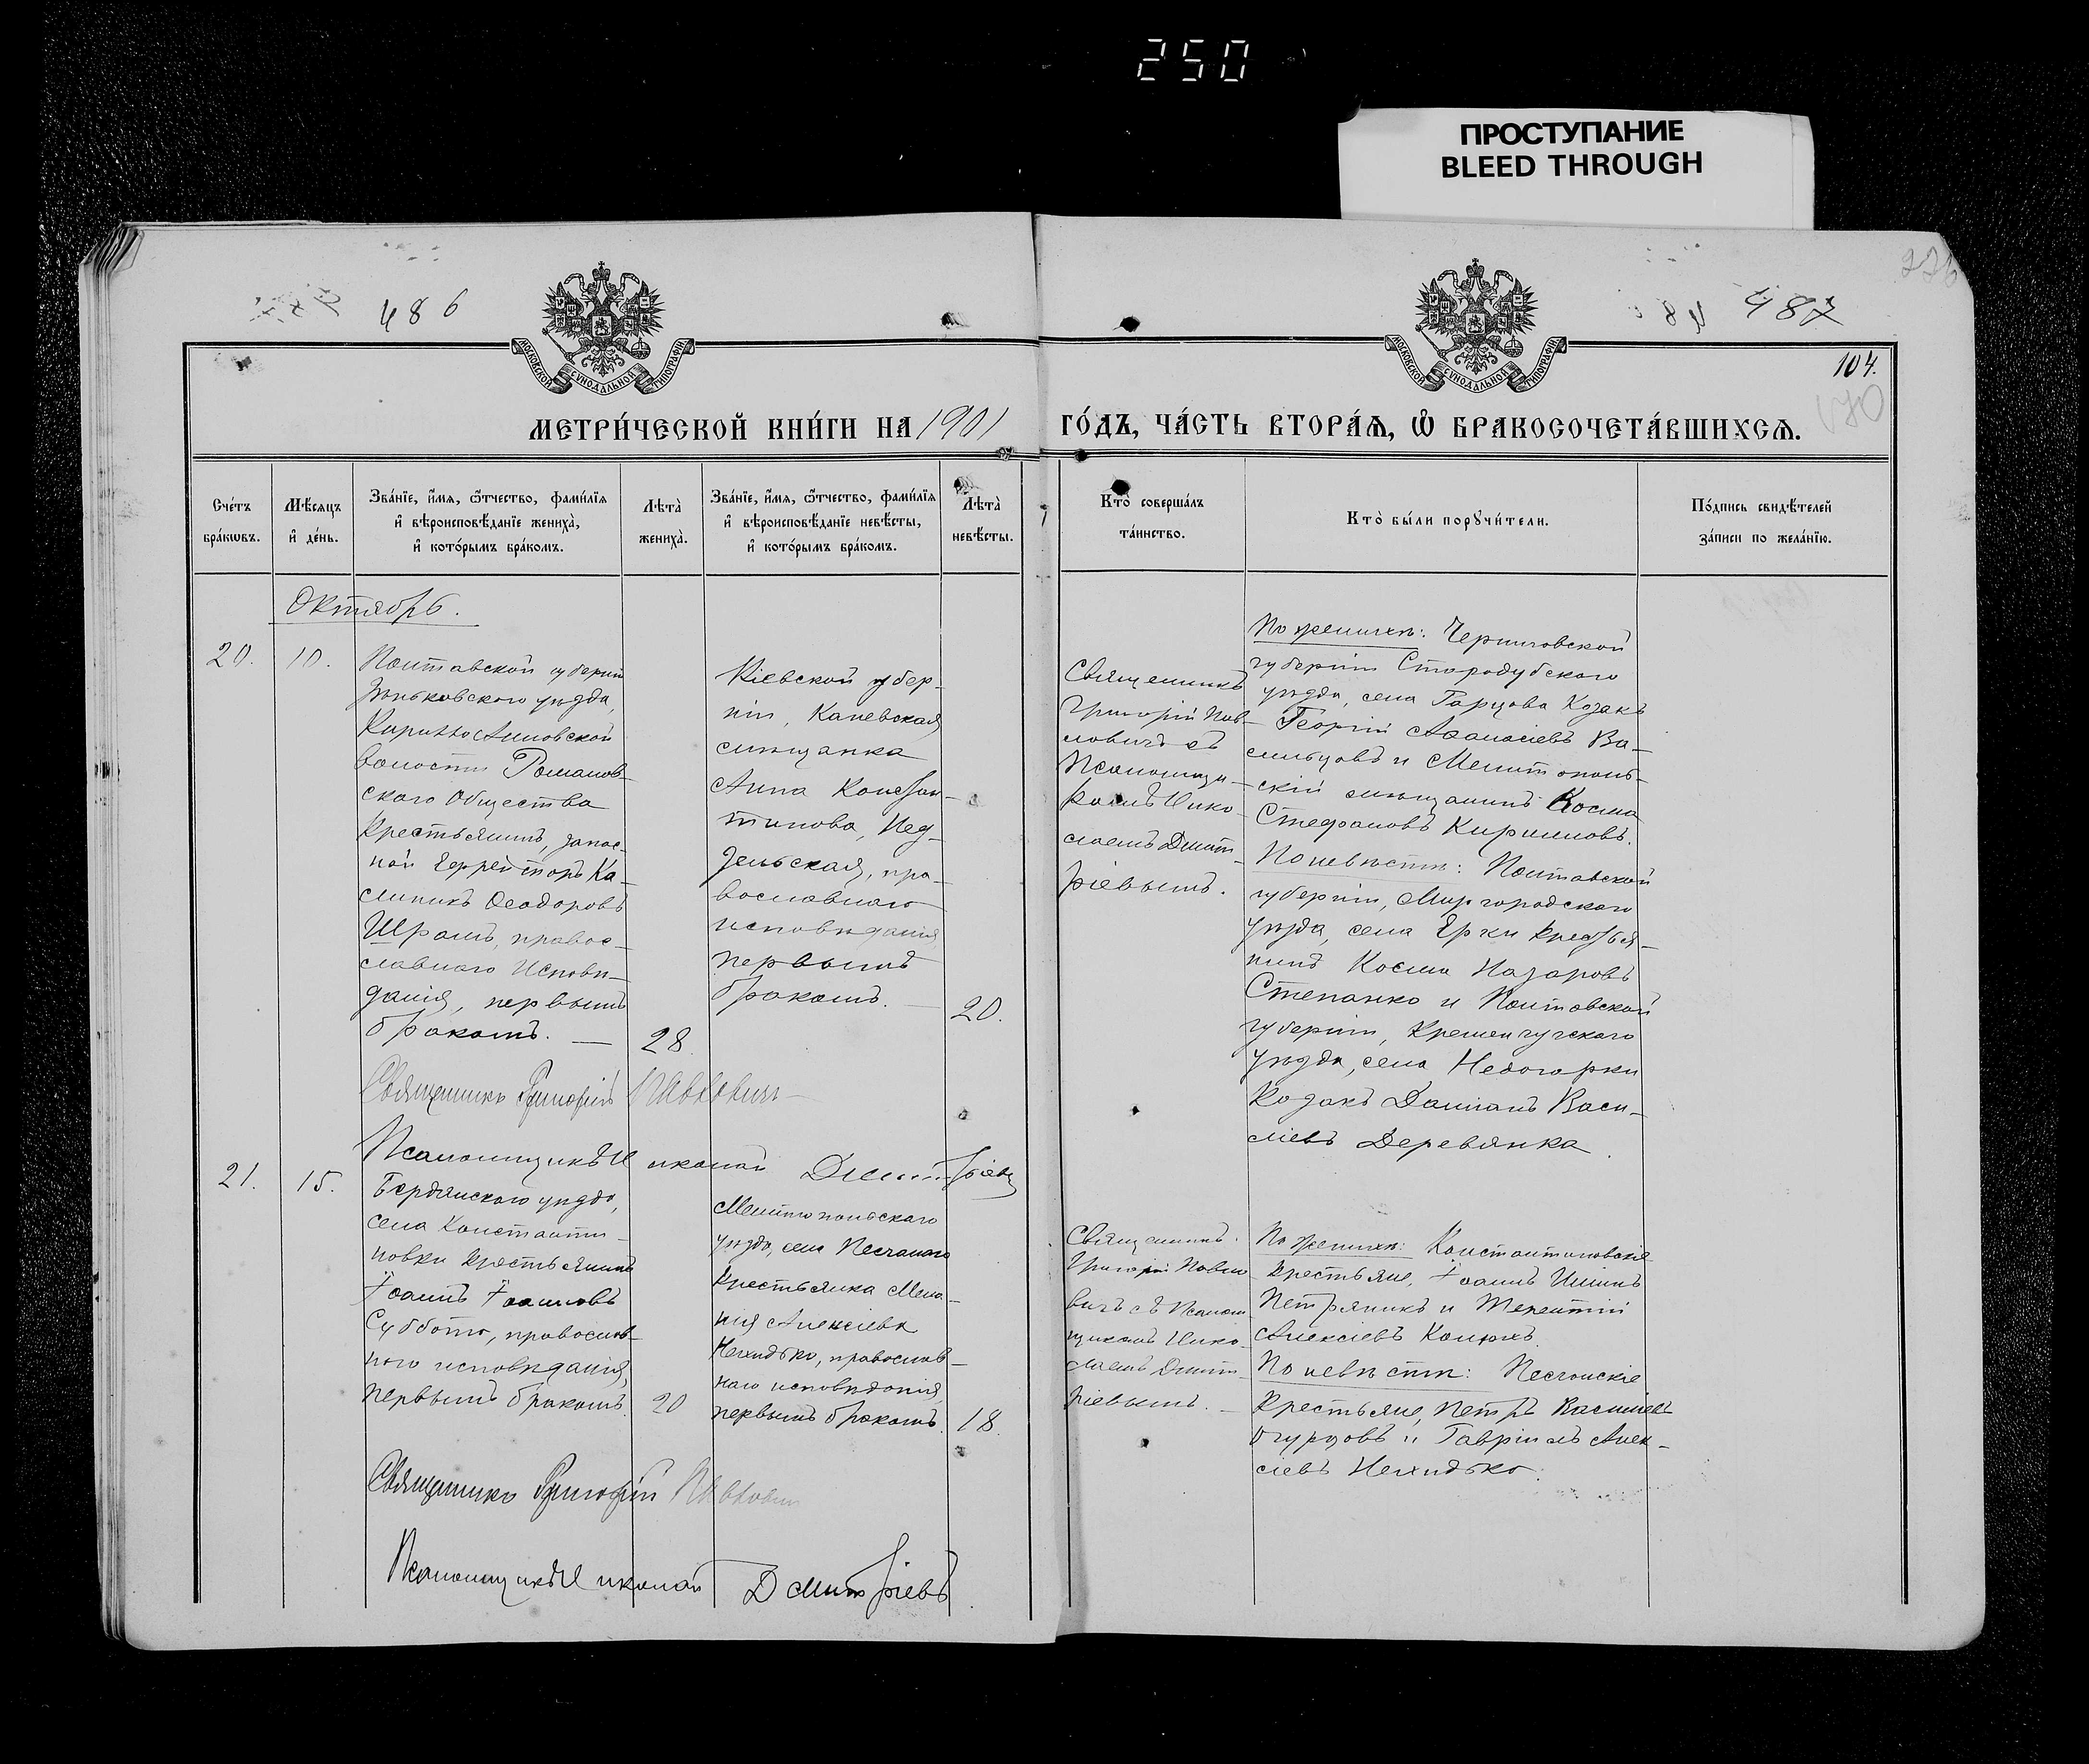 250
ПРОСТУПАНИЕ
BLEED THROUGH
486
487
МОСКОВСКОЙ СѴНОДАЛЬНОЙ ТИПОГРАФІИ
МОСКОВСКОЙ СѴНОДАЛЬНОЙ ТИПОГРАФІИ
104.
170
МЕТРИ́ЧЕСКОЙ КНИ́ГИ НА 1901 ГО́ДЪ, ЧА́СТЬ ВТОРА́Ѧ, Ѡ҆ БРАКОСОЧЕТА́ВШИХСѦ.
Сче́тъ
бра́кѡвъ.
Мѣ́сѧцъ
и҆ де́нь.
Зва́нїе, и҆́мѧ, ѻ҆́тчество, фами́лїѧ
и҆ вѣроисповѣ́данїе жениха̀,
и҆ кото́рымъ бра́комъ.
Лѣта̀
жениха̀.
Зва́нїе, и҆́мѧ, ѻ҆́тчество, фами́лїѧ
и҆ вѣроисповѣ́данїе невѣ́сты,
и҆ кото́рымъ бра́комъ.
Лѣта̀
невѣ́сты.
Кто̀ соверша́лъ
та́инство.
Кто̀ бы́ли порꙋчи́тели.
По́дпись свидѣ́телей
за́писи по жела́нїю.
Октябрь.
20.
10.
Полтавской губерніи
Зѣньковскаго уѣзда,
волости Романов-
скаго Общества
крестьянинъ, запас-
ной Ефрейторъ Ка-
линикъ Ѳеодоровъ
Шрамъ, правос-
лавнаго исповѣ-
данія, первымъ
бракомъ. —
28.
Кіевской губер-
ніи, Каневская
мѣщанка
Анна Констан-
тинова, Нед-
зельская, пра-
вославнаго
исповѣданія
первымъ
бракомъ. —
20.
Священникъ
Григорій Пав-
ловичъ съ
Псаломщи-
комъ Нико-
лаемъ Дмит-
ріевымъ.
По женихѣ: Черниговской
губерніи Стародубскаго
уѣзда, села Гарцова Козакъ
Георгій Аѳанасіевъ Ва-
сильцовъ и Мелитополь-
скій мѣщанинъ Косма
Стефановъ Кирилловъ.
По невѣстѣ: Полтавской
губерніи, Миргородскаго
уѣзда, села Ерки крестья-
нинъ Косма Назаровъ
Степанко и Полтавской
губерніи, Кременчугскаго
уѣзда, села Недогарки
Козакъ Даміанъ Васи-
ліевъ Деревянка.
Священникъ Григорій Павловичъ
Псаломщикъ Николай Дмитріевъ
21.
15.
Бердянскаго уѣзда,
села Константи-
новки крестьянинъ
Іоаннъ Іоанновъ
Суббота, православ-
наго исповѣданія,
первымъ бракомъ.
20
Мелитопольскаго
уѣзда, села Песчанаго
крестьянка Мела-
нія Алексіева
Нехидько, православ-
наго исповѣданія,
первымъ бракомъ.
18.
Священникъ
Григорій Павло-
вичъ съ Псалом-
щикомъ Нико-
лаемъ Дмит-
ріевымъ. —
По женихѣ: Константиновскіе
крестьяне, Іоаннъ
Петряникъ и Терентій
Алексіевъ
По невѣстѣ: Песчанскіе
крестьяне, Петръ Василіевъ
Огурцовъ и Гавріилъ Алек-
сіевъ Нехидько.
Священникъ Григорій Павловичъ
Псаломщикъ Николай Дмитріевъ